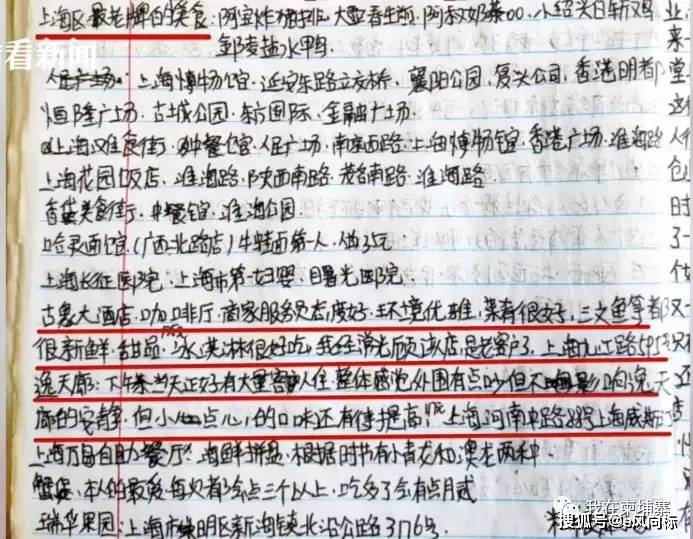 看看新闻
上海区最老牌的美食:阿宝炸猪排、大壶春生煎、阿叔奶茶00、小绍兴白斩鸡
盐水鸭
人民广场。上海博物馆、延安东路立交桥、襄阳公园、复兴公司、香港明都
恒隆广场、古城公园、东方国际、金融广场
上海美食街、中餐馆、人民广场、南京西路、上海博物馆、香港广场、淮海路
上海花园饭店、淮海路、陕西南路、茂名南路、淮海路
美食街、中餐馆、淮海公园
哈灵面馆(广西北路店)
上海长征医院、上海市第一妇婴、曙光医院
古象大酒店、咖啡厅、商家服务员态度好、环境优雅、菜肴很好、三文鱼等都
很新鲜、甜品、冰淇淋很好吃、我经常光顾该店、是老客户了、上海九江路595
逸天廊:下午茶当天正好有大量客人住、整体感觉外围有点吵但不影响逸天
廊的安静、但小点心、的口味还有待提高、上海河南中路
上海万自助餐厅、海鲜拼盘、根据时节有小青龙和澳龙两种
蟹宴、本人的最爱每次有会点三个以上、吃多了会有点月贰
瑞华果园:上海市崇明区新海镇北沿公路3176号
我在柬埔寨
搜狐号@b风向标